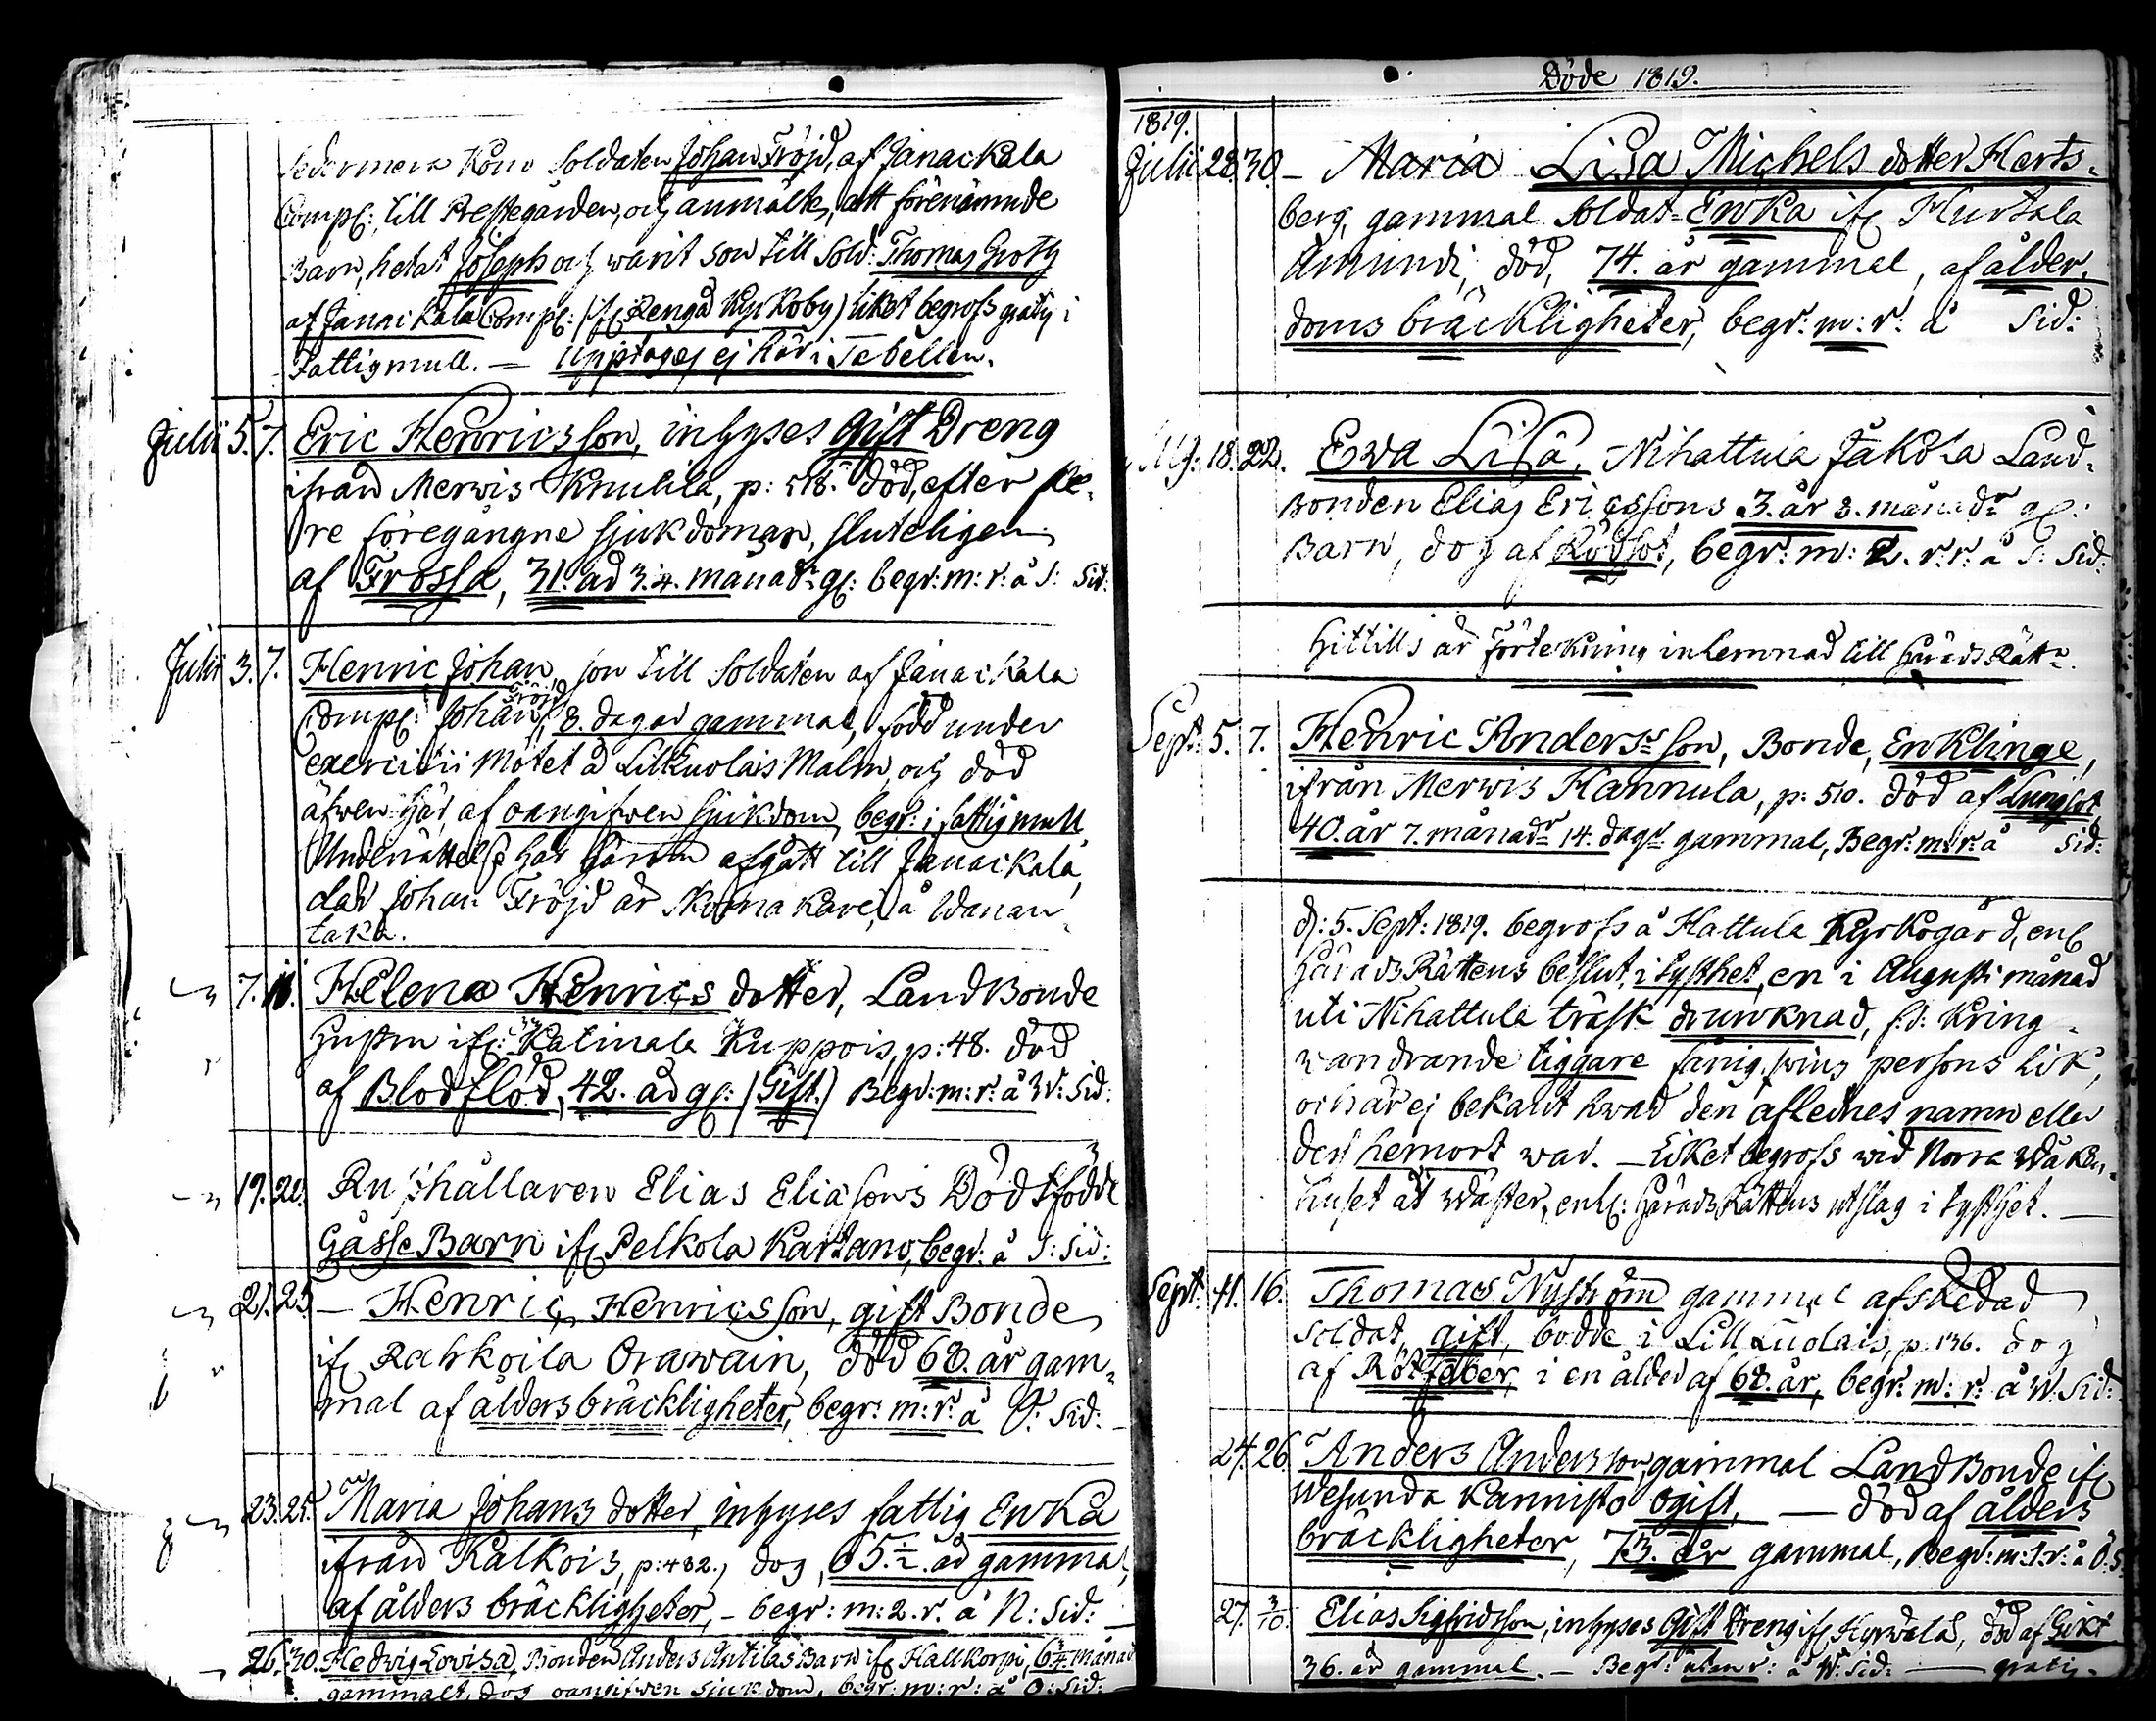 Sedermera kom Soldaten Johan Fröjd, af Janackala
Comp: till Prestegården, och anmälte, att förenämnde
Barn, hetat Joseph och warit son till Sold: Thomas Grotz
af Janackala Comp: (if: Rengå Kyrkoby) liket begrofs gratis i
Fattigmull. — Upptages ej här i Tabellen.
Julii 5. 7. Eric Henricsson, inhyses gift Dreng
ifrån Merwis Knulila, p: 518. död, efter fle-
re föregångne sjukdomar, sluteligen
af Frossa, 31. år 3. 4. månadr gl: begr: m: r: å S: Sid:
Julii 3. 7. Henric Johan, son till Soldaten af Janackala
Comp: Johan Fröjd, 8. dagar gammal, född under
exercitii Mötet å Lillluolais Malm, och död
äfwen här, af oangifwen sjukdom, begr: i fattigmull
Underrättelse har härom afgått till Janackala,
der Johan Fröjd är Skrifwa karl, å Wanan-
taka.
7. 11. Helena Henrics dotter, LandBonde
Hustru if: Katinala Kuppois, p: 48. död
af Blodflöd, 42. år gl: (Gift.) Begr: m: r: å W: Sid:
19. 20. Rusthållaren Elias Eliasons Dödfödde
GåsseBarn if: Pelkola Kartano, begr: å S: Sid:
21. 23. — Henric Henricsson, gift Bonde
if: Rahkoila Orawain, död 68. år gam-
mal af ålders bräckligheter, begr: m: r: å Ö: Sid:
23. 25. Maria Johans dotter, inhyses fattig Enka
ifrån Kalkois, p: 482., dog, 65.½ år gammal,
af ålders bräckligheter, — begr: m: 2. r. å N: Sid:
26. 30. Hedwig Lovisa, Bonden Anders Antilas Barn if: Hallkorpi, 6¾ månad
gammalt, dog oangifwen sjukdom, begr: m: r: å Ö: Sid:
Döde 1819.
1819.
Julii 28. 30. — Maria Lisa Michels dotter Herts-
berg, gammal Soldat-Enka if: Hurtala
Amundi, död, 74. år gammal, af ålder-
doms bräckligheter, begr: m: r: å Sid:
Aug: 18. 22. Ewa Lisa, Nihattula Jakola Land-
Bonden Elias Ericssons 3. år 8. månadr gl:
Barn, dog af Rödsot, begr: m: 2. r. r: å S: Sid:
Hittills är Förtekning inlemnad till HäradsRätt.
Sept: 5. 7. Henric Andersson, Bonde, Enklinge,
ifrån Merwis Hannula, p: 510. död af Lungsot
40. år 7. månadr 14. dagr gammal, Begr: m: r: å Sid:
d: 5. Sept: 1819. begrofs å Hattula Kyrkogård, enl:
HäradsRättens beslut, i tysthet, en i Augusti månad
uti Nihattula träsk drunknad, s: d: kring-
wandrande tiggare fånig qwins persons lik,
och är ej bekant hwad den aflednes namn eller
dess hemort war. — Liket begrofs wid Norra Wåken-
huset åt Wäster, enl: HäradsRättens utslag i tysthet. —
Sept: 11. 16. Thomas Nyström gammal afskedad
Soldat, gift, bodde i Lill Luolais, p. 136. dog
af Rötfeber, i en ålder af 68. år, begr: m: r: å W. Sid:
24. 26. Anders Andersson, gammal LandBonde if:
Wesunda Kannisto ogift, — död af ålders
bräckligheter, 73. år gammal, Begr: m: 1. r: å Ö: S
27. 3/10. Elias Sigfridsson, inhyses Gift Dreng if: Hyrwälä, död af Gikt
36. år gammal. — Begr: utan r: å W: Sid: — gratis.